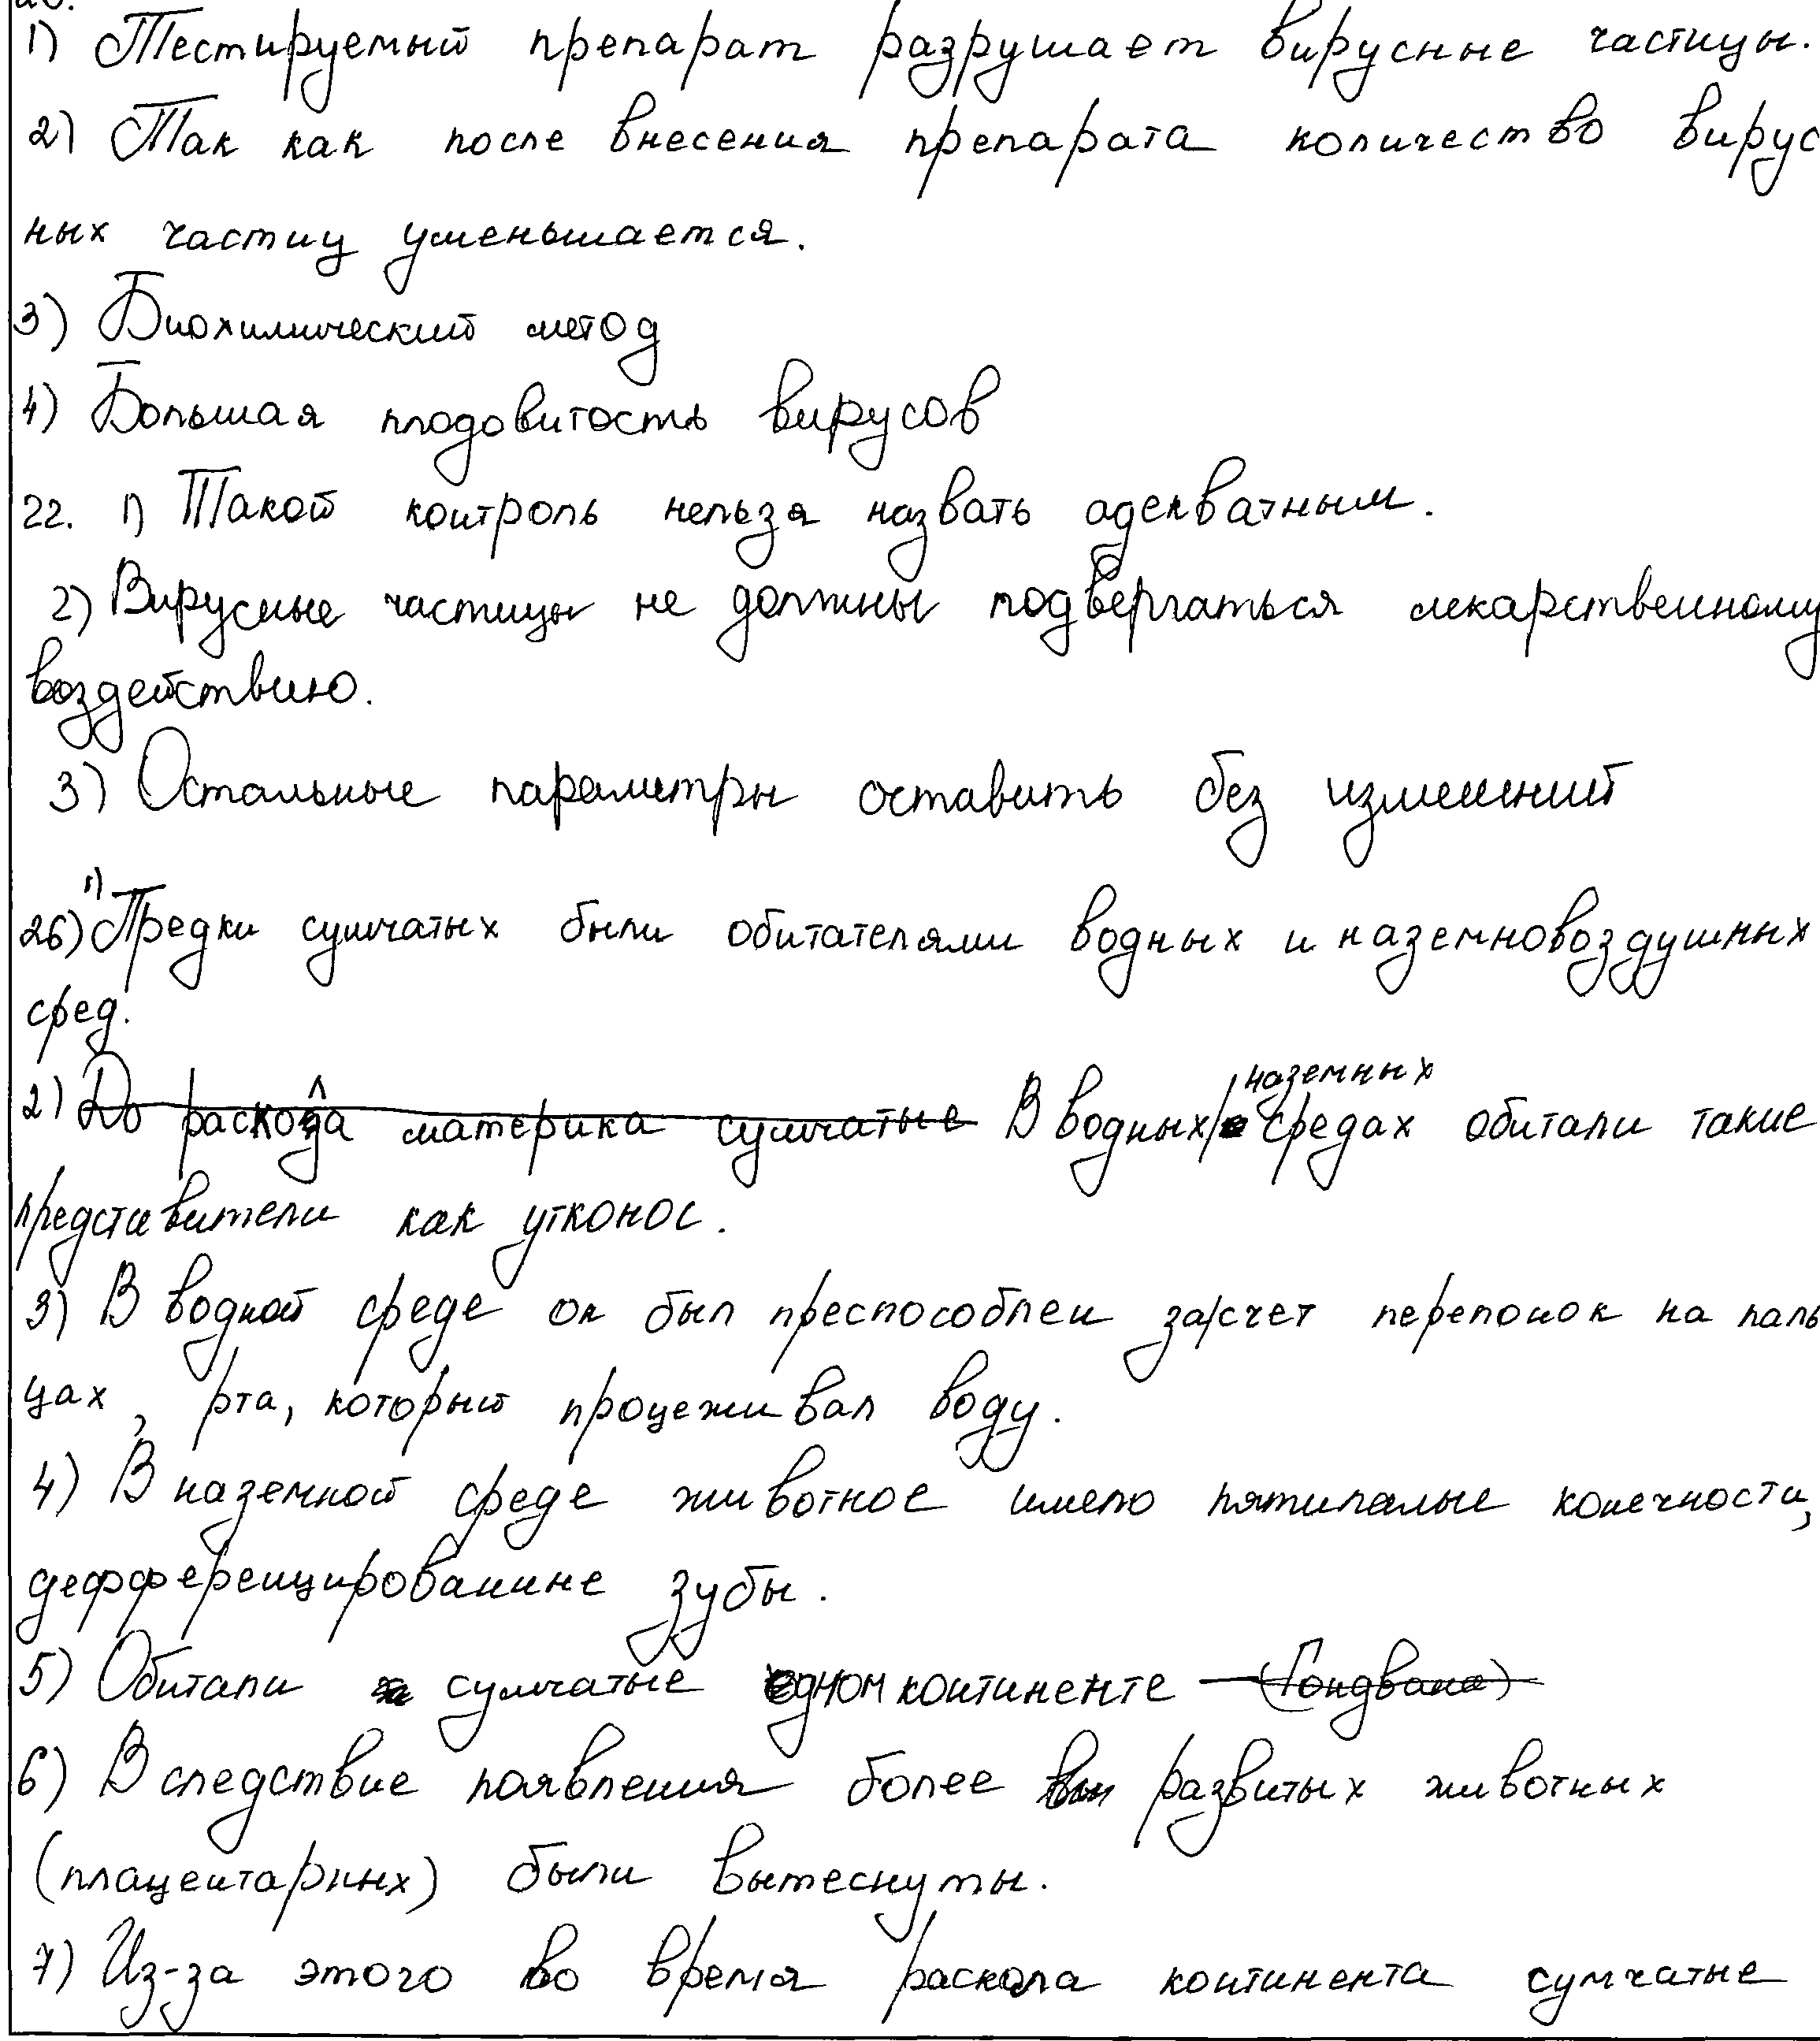 1) Тестируемый препарат разрушает вирусные частицы.
2) Так как после внесения препарата количество вирус
ных частиц уменьшается.
3) Биохимический метод
4) Большая плодовитость вирусов
22. 1) Такой контроль нельзя назвать адекватным.
2) Вирусные частицы не должны подвергаться лекарственному
воздействию.
3) Остальные параметры оставить без изменений
26) 1) Предки сумчатых были обитателями водных и наземновоздушных
сред.
2) До раскола материка сумчатые В водных/наземных средах обитали такие
представители как утконос.
3) В водной среде он был преспособлен за/счет перепонок на паль
цах, рта, который процеживал воду.
4) В наземной среде животное имело пятипалые конечности,
дефференцированние зубы.
5) Обитали сумчатые одном континенте (Гондвана)
6) В следствие появления более развитых животных
(плацентарных) были вытеснуты.
7) Из-за этого во время раскола континента сумчатые